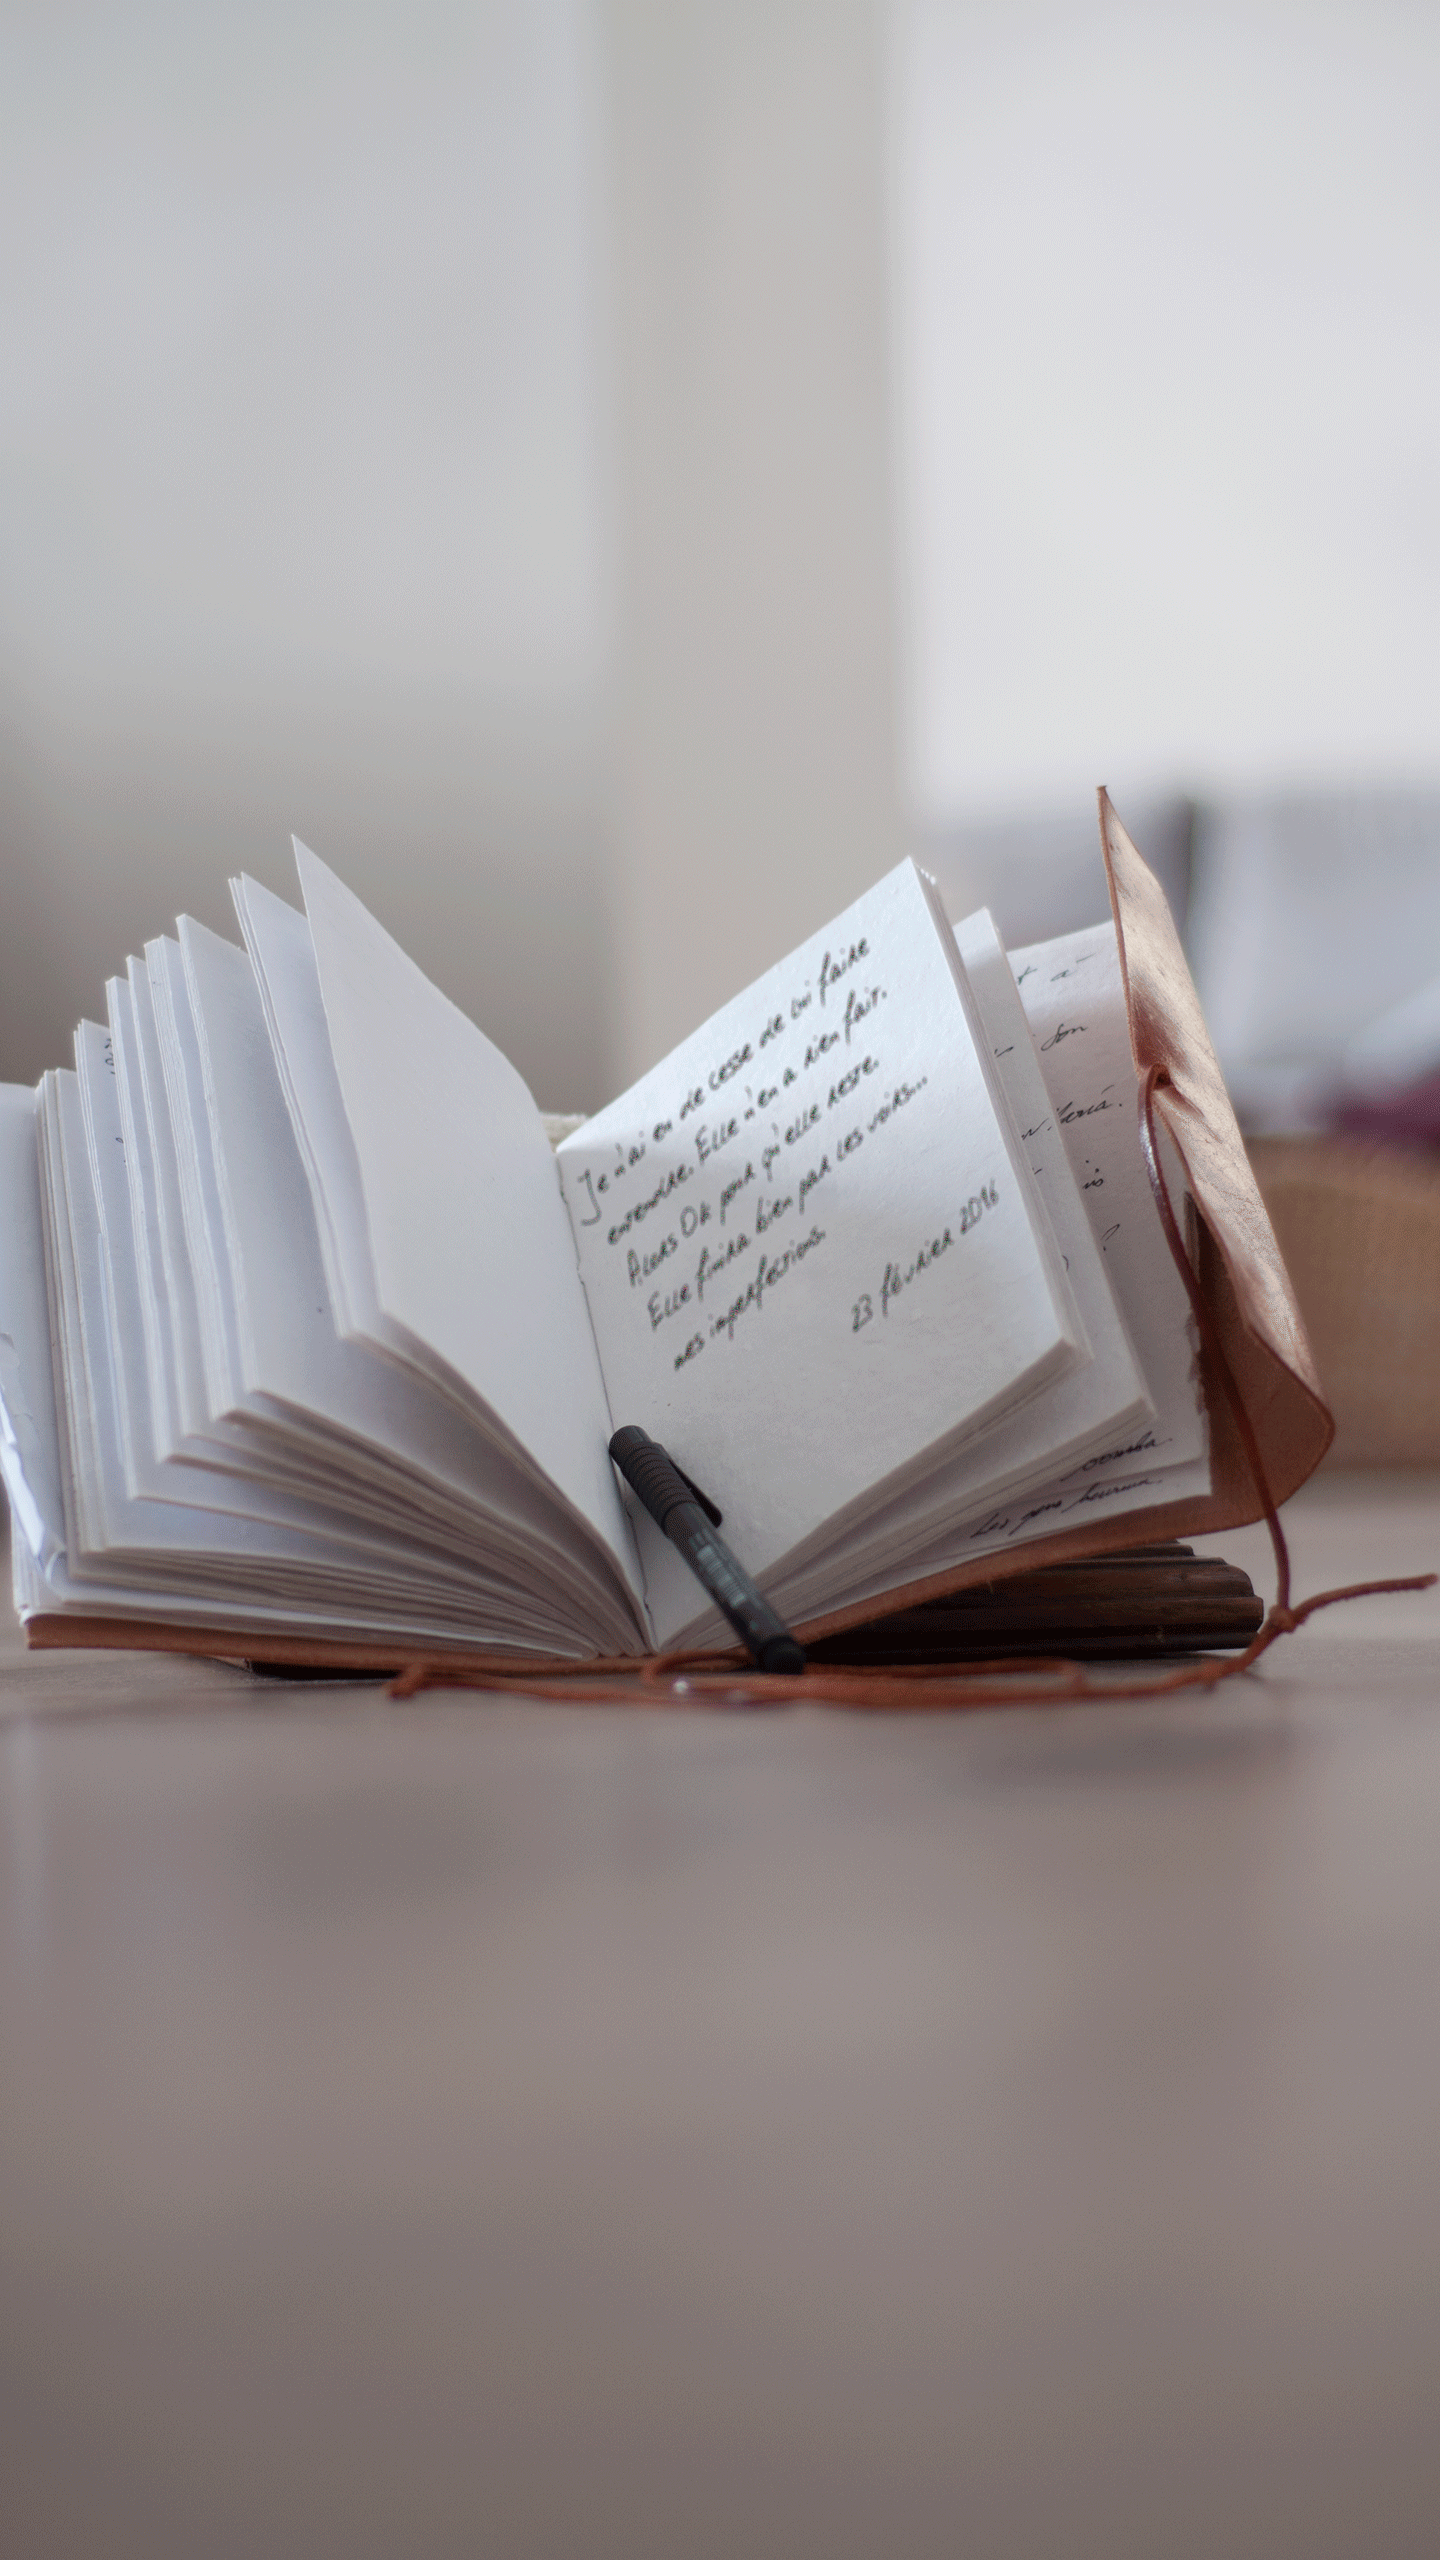 Je n'ai eu de cesse de lui faire
entendre. Elle n'en a rien fait.
Alors OK pour qu'elle reste.
Elle finira bien par les voirs...
mes imperfections.
23 février 2016
à
son
is
Les gens heureux